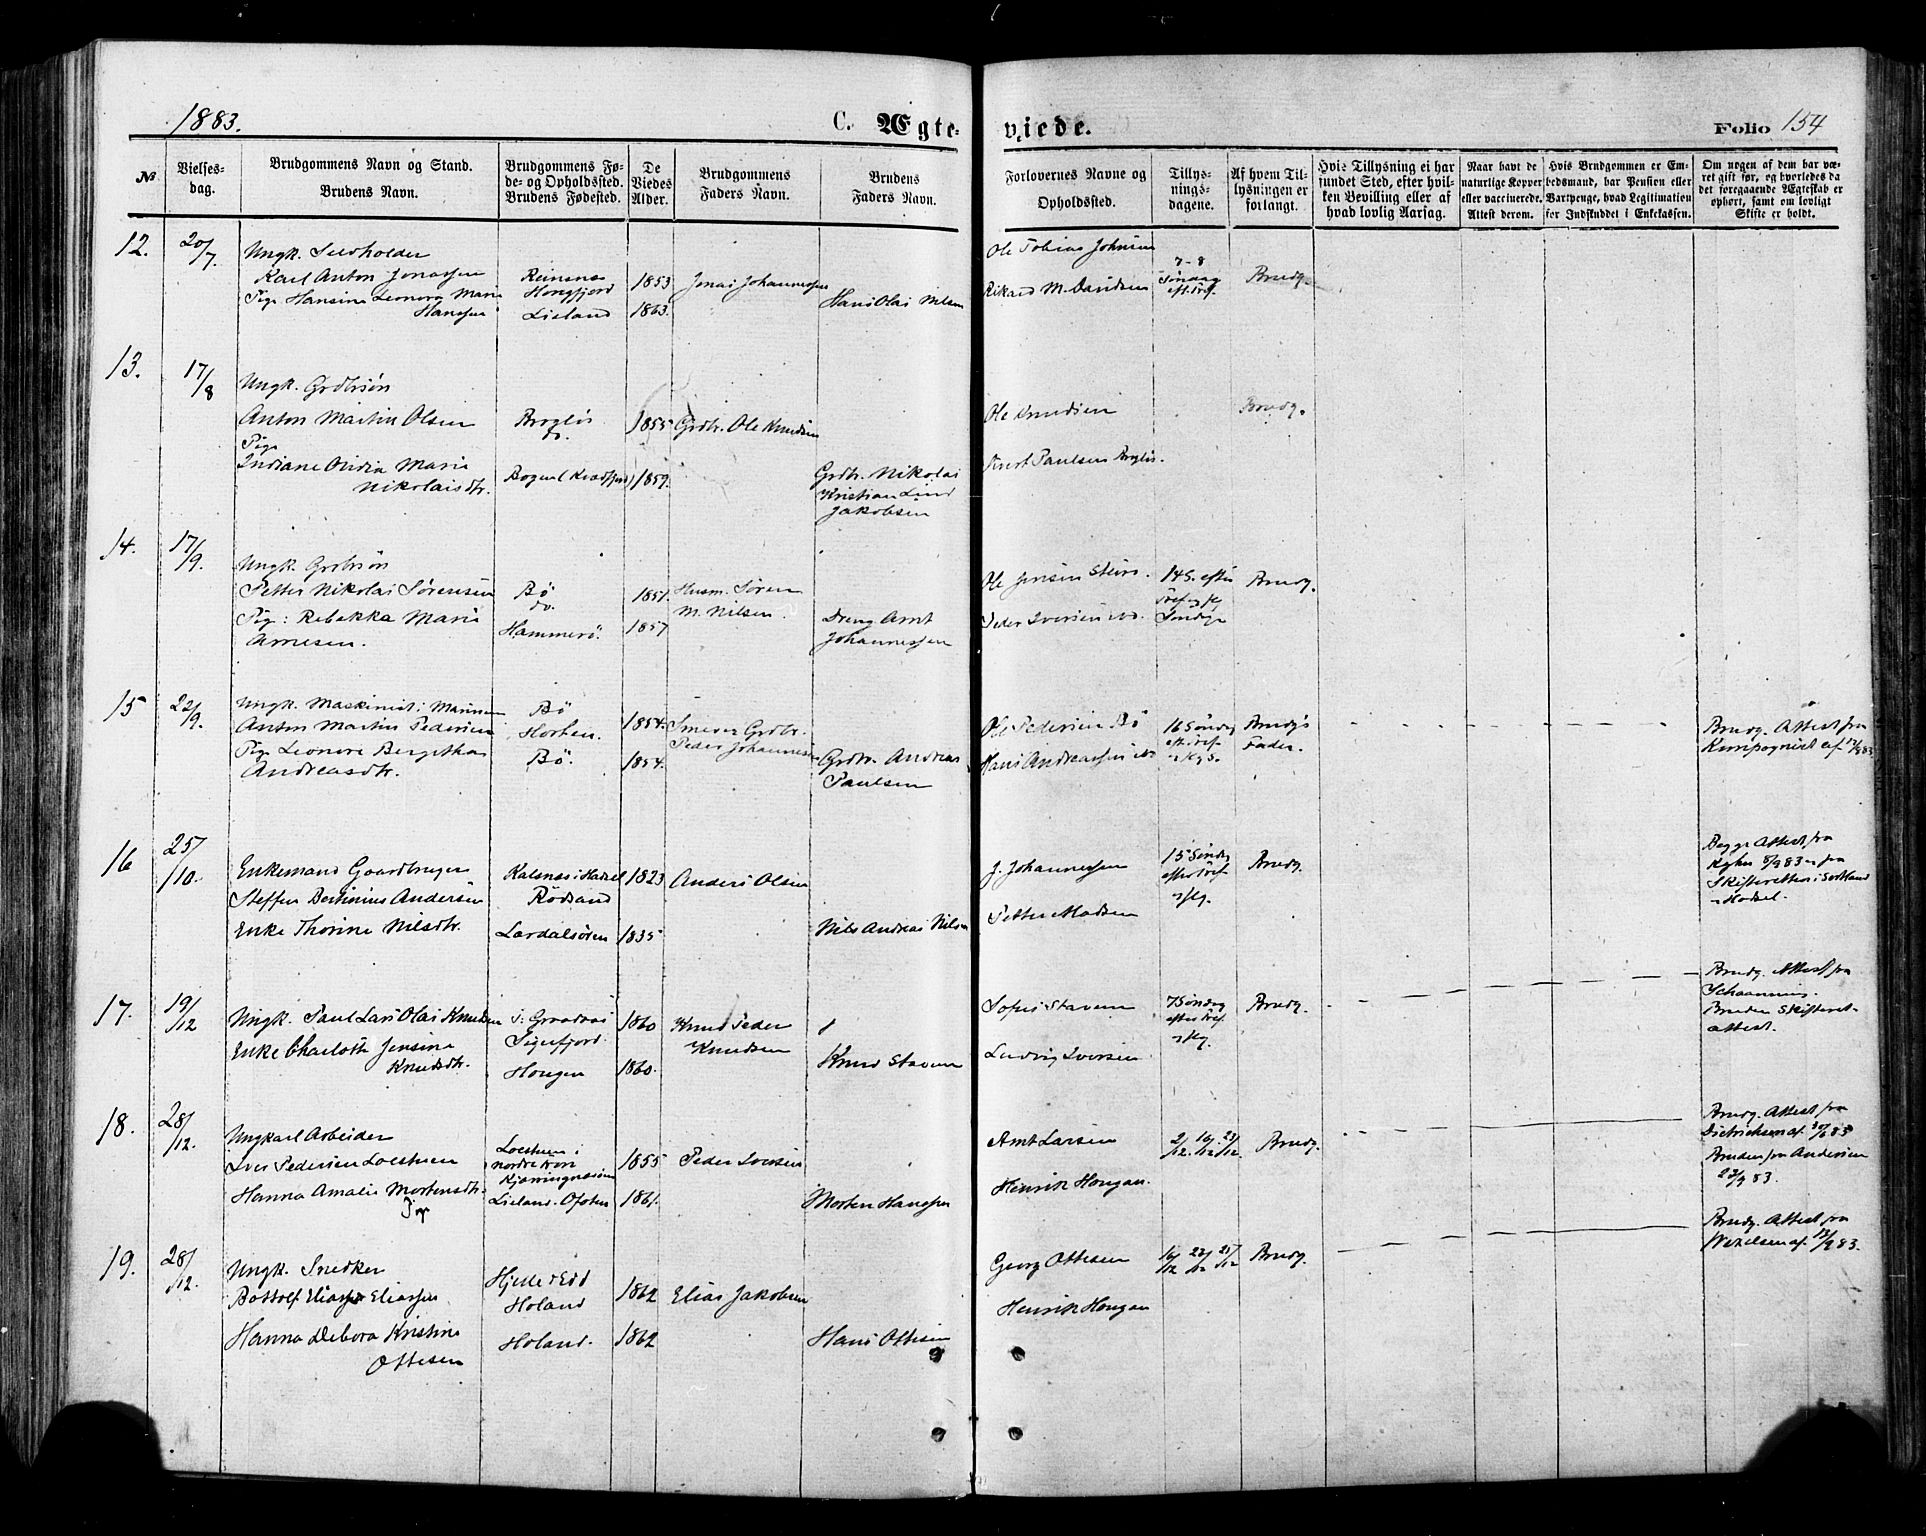 1883.
C. Ægte-
viede.
Folio 154
№
Vielses-
dag.
Brudgommens Navn og Stand.
Brudens Navn.
Brudgommens Fø-
de- og Opholdssted.
Brudens Fødested.
De
Viedes
Alder.
Brudgommens
Faders Navn.
Brudens
Faders Navn.
Forlovernes Navne og
Opholdssted.
Tillys-
nings-
dagene.
Af hvem Til-
lysningen er
forlangt.
Hvis Tillysning ei har
fundet Sted, efter hvil-
ken Bevilling eller af
hvad lovlig Aarsag.
Naar havt de
naturlige Kopper
eller vaccinerede.
Attest derom.
Hvis Brudgommen er Em-
bedsmand, har Pension eller
Vartpenge, hvad Legitimation
for Indskuddet i Enkekassen.
Om nogen af dem har væ-
ret gift før, og hvorledes da
det foregaaende Ægteskab er
ophørt, samt om lovligt
Skifte er holdt.
12.
20/7.
Ungk.
Karl Anton Jonassen
Pige Hansine Leonora Marie
Hanssen
Reinsnes
Hongfjord
Lieland
1853
1863.
Jonas Johannessen
Hans Olai Nilsen
Ole Tobias Johnsen
Rikard M. Davidsen
7-8
Søndag
eft. Tref.
Brudg.
13.
17/8
Ungk. Grdbrsøn
Anton Martin Olsen
Pige
Indiane Ovidia Marie
Nikolaisdtr.
do.
1855
1859.
Grdbr. Ole Knudsen
Grdbr. Nikolai
Kristian Lind
Jakobsen
Ole Knudsen
Knut Paulsen
Brudg.
14.
17/9.
Ungk. Grdbrsøn
Petter Nikolai Sørensen
Pige: Rebekka Marie
Arnesen.
Bø
do.
Hammerø.
1851.
1857
Husm. Søren
M. Nilsen.
Dreng Arnt
Johannessen
Ole Jensen Steiro.
Peder Iversen ibd.
14 S. efter
Tref. og Hg
Søndge
Brudg.
15
22/9.
Ungk. Maskinist i Marinen
Anton Martin Pedersen
Pige Leonore Bergithe
Andreasdtr.
Bø
Horten.
Bø.
1854.
1854.
Grdbr.
Peder Johannessen
Grdbr. Andreas
Paulsen
Ole Pedersen Bø
Hans Andreassen ibd
16 Søndag
eft. Tref.
Brudg's
Fader.
Brudg. Attest fra
16
25/10.
Enkemand Gaardbruger
Steffen Bertinius Andersen
Enke Thorine Nilsdtr.
Kalsnæs i Hadsel
Rødsand
Lærdalsøren
1823
1835
Anders Olsen
Nils Andreas Nilsen
J. Johannessen
Petter Madsen
15 Søndg
efter Tref
Brudg.
Begge Attest fra
Skifteretten i Sortland
Hadsel.
17.
19/12
Ungk. Paul Lars Olai Knudsen
Enke Charlotte Jensine
Knudsdtr.
Sigerfjord.
Hougen
1860
1860.
Knud Peder
Knudsen
Knud Staven
Sofus Staven
Ludvig Iversen
7 Søndag
efter Tref.
Brudg.
Brudg. Attest fra
Schaanning.
Bruden Skifteret-
attest.
18.
28/12.
Ungkarl Arbeider
Iver Pedersen
Hanna Amalie Mortensdtr.
Pige
1855
1861.
Lieland. Ofoten
Peder Iversen
Morten Hanssen
Arnt Larsen
Henrik Hougan.
2/12. 16/12 23/12.
Brudg.
Brudg. Attest fra
Bruden fra Andersen
19.
28/12.
Ungk. Snedker
Bottolf Eliassen Eliassen
Hanna Debora Kristine
Ottesen
Holand
Holand.
1862
1862
Elias Jakobsen
Hans Ottesen
Georg Ottesen
Henrik Hougan
16/12 23/12 25/12
Brudg.
Brudg. Attest fra